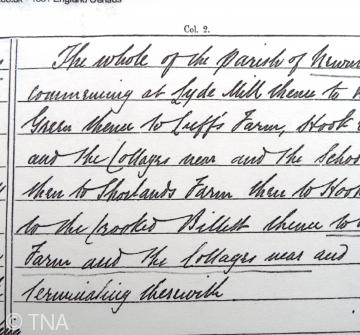 1881 England Census
Col. 2.
The whole of the Parish of
commencing at Lyde Mill thence to
Green thence to Luff's Farm, Hook
and the Cottages near and the School
then to Shorlands Farm then to Hook
to the Crooked Billett thence to
Farm and the Cottages near and
terminating therewith
© TNA